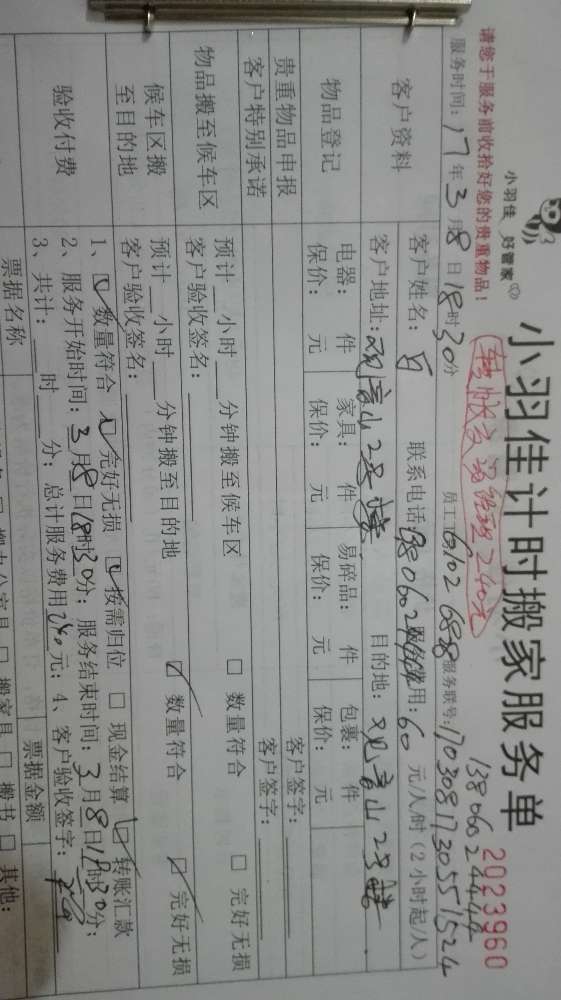 小羽佳 好管家
小羽佳计时搬家服务单
2023960
请您于服务前收拾好您的贵重物品！
13806024444
服务时间：17年3月8日18时30分
员工
服务联号：17030817305571524
客户资料
客户姓名：
联系电话
费用：60元/人/时（2小时起/人）
客户地址：观音山2号楼
目的地：观音山2号楼
物品登记
电器： 件 家具： 件 易碎品： 件 包裹： 件
保价： 元 保价： 元 保价： 元 保价： 元
贵重物品申报
客户签字：
客户特别承诺
客户签字：
物品搬至候车区
预计__小时__分钟搬至候车区
□ 数量符合 □ 完好无损
客户验收签名：
候车区搬至目的地
预计__小时__分钟搬至目的地
☑ 数量符合 ☑ 完好无损
客户验收签名：
验收付费
1、☑ 数量符合 ☑ 完好无损 ☑ 按需归位 □ 现金结算 ☑ 转账汇款
2、服务开始时间：3月8日18时30分；服务结束时间：3月8日19时30分；
3、共计：__时__分；总计服务费用240元；4、客户验收签字：
票据名称
票据金额
□ 搬办公家具 □ 搬家具 □ 搬书 □ 其他：